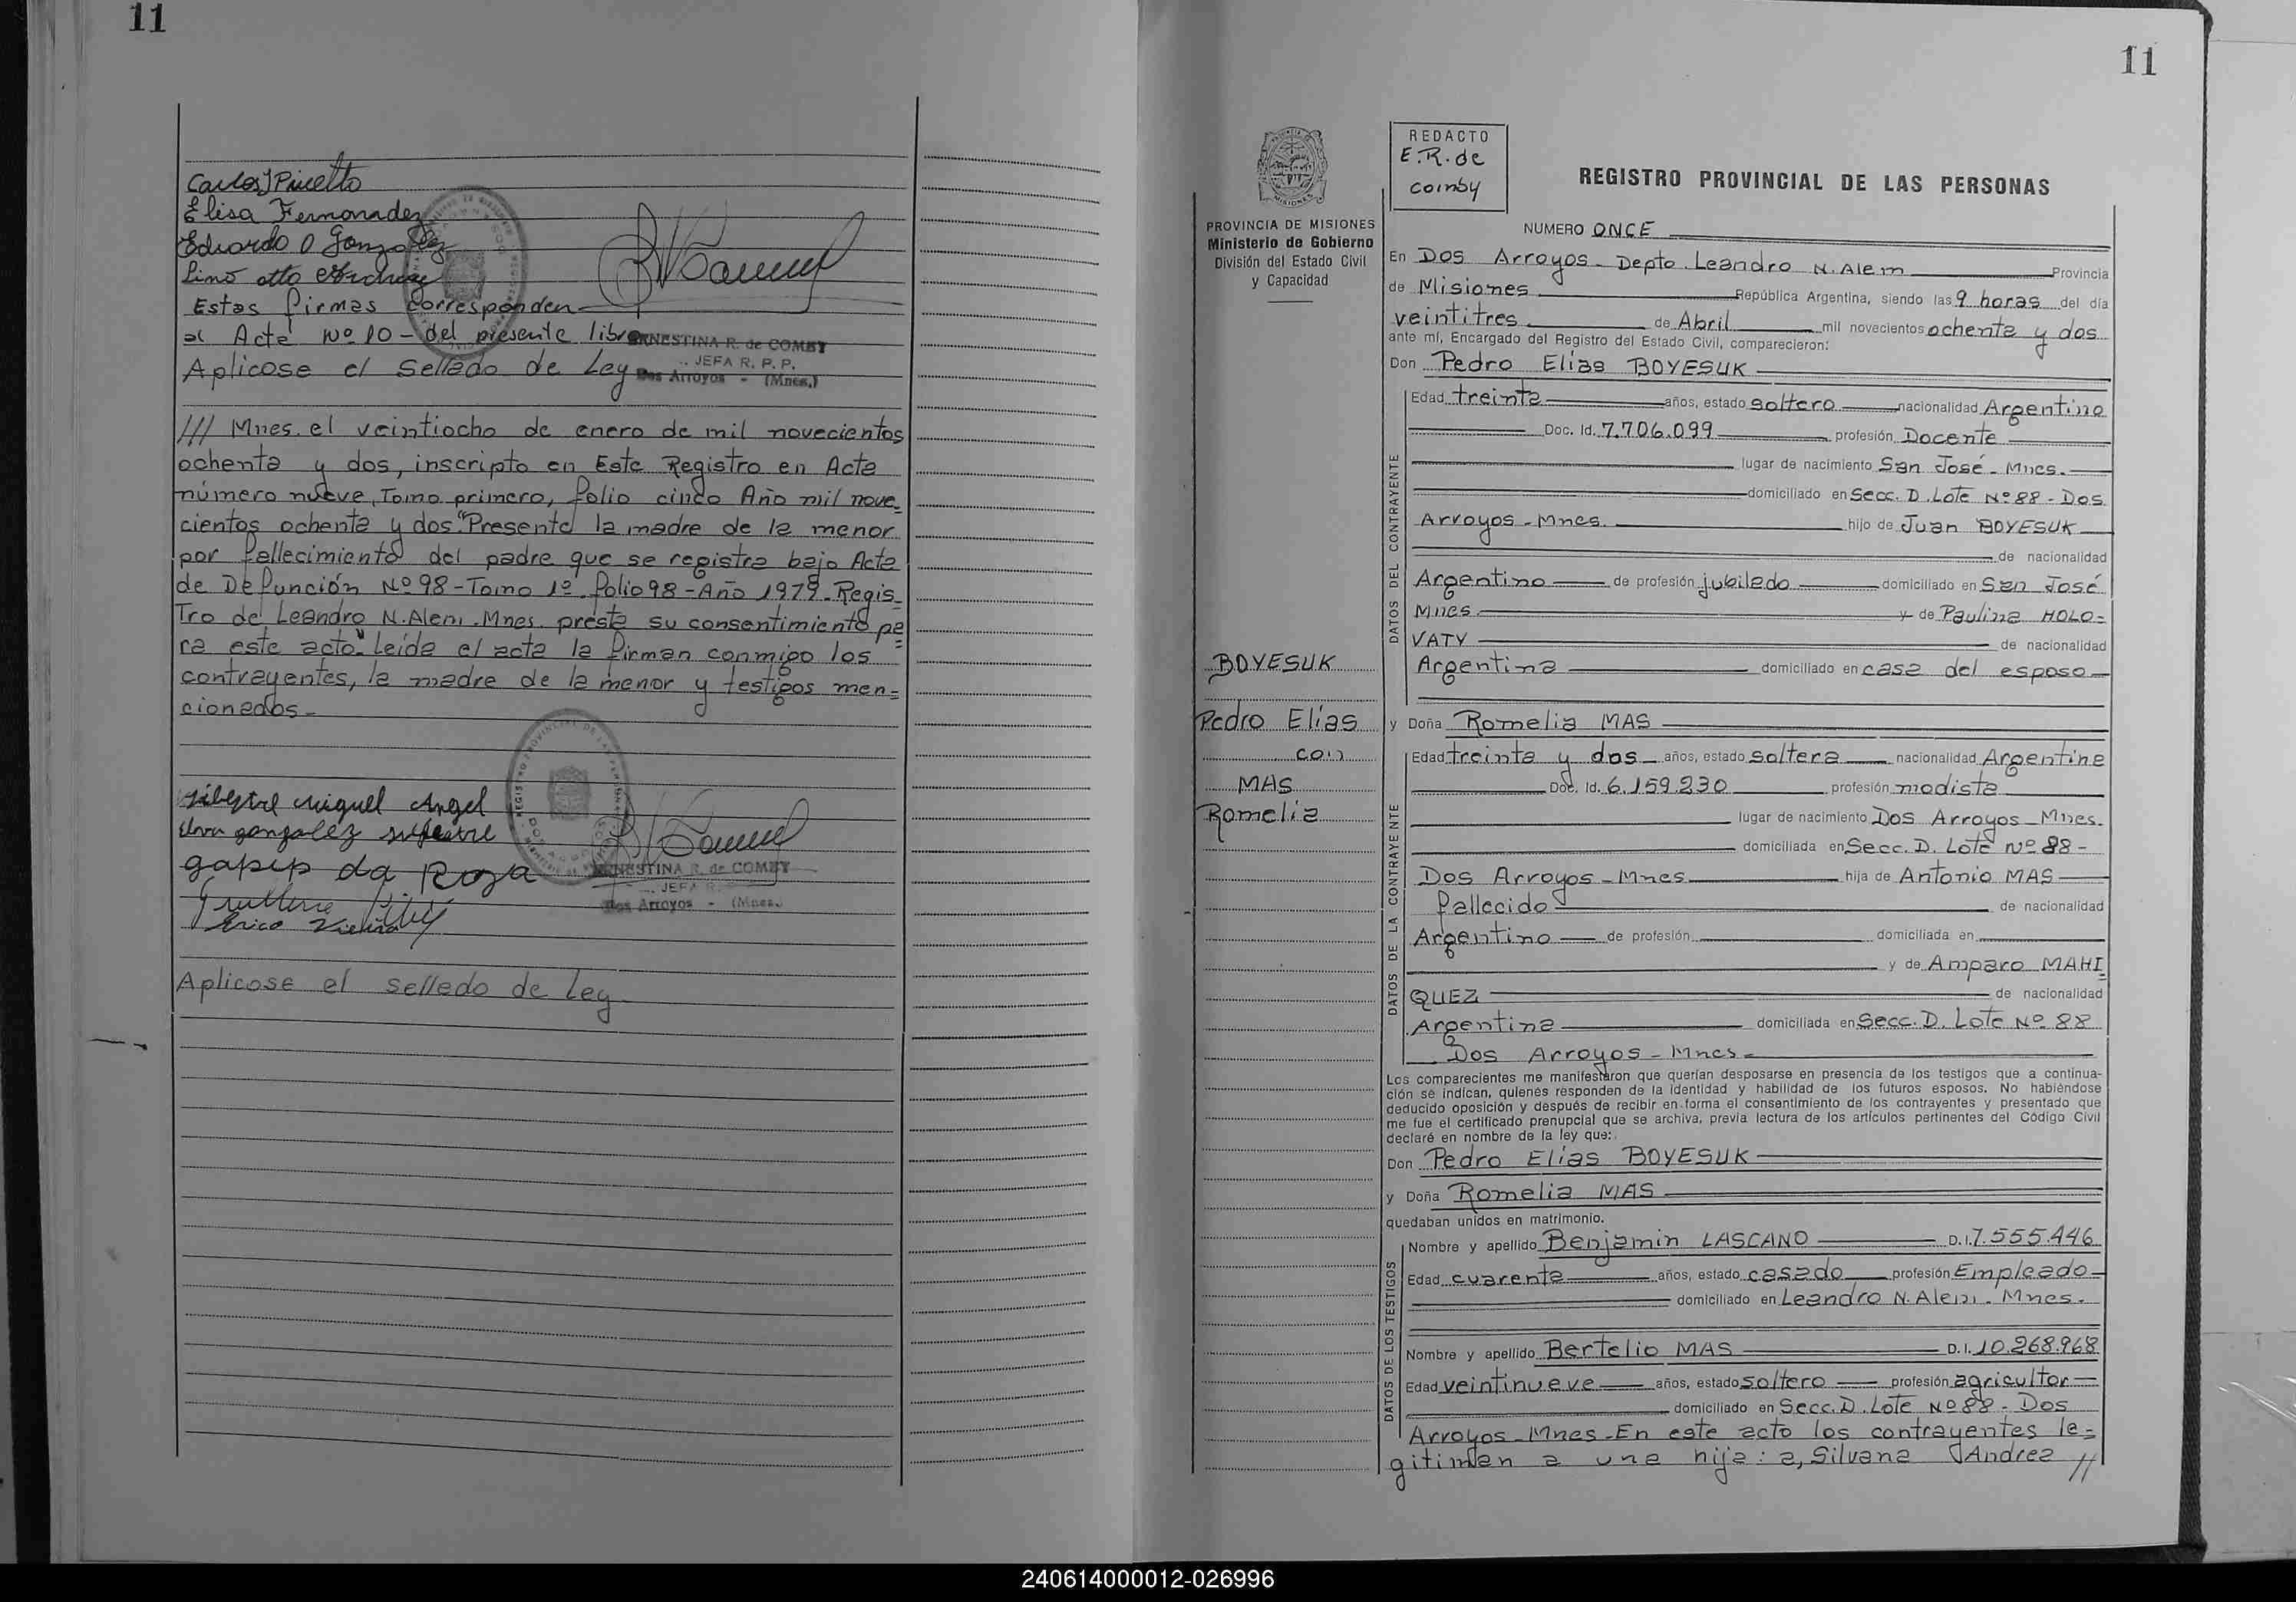 11
Elisa Fernandez
Eduardo O Gonzalez
Lino otto
Estas firmas corresponden
al Acta Nº 10 - del presente libro
ERNESTINA R. de COMBY
JEFA R. P. P.
Dos Arroyos - (Mnes.)
Aplicose el Sellado de Ley
/// Mnes. el veintiocho de enero de mil novecientos
ochenta y dos, inscripto en Este Registro en Acta
número nueve, Tomo primero, folio cinco Año mil nove-
cientos ochenta y dos "Presente la madre de la menor
por fallecimiento del padre que se registra bajo Acta
de Defunción Nº 98 - Tomo 1º folio 98 - Año 1979 - Regis-
Tro de Leandro N. Alem. Mnes. presta su consentimiento pa
ra este acto" Leída el acta la firman conmigo los
contrayentes, la madre de la menor y testigos men-
cionados -
silvestre Miguel Angel
gonzalez silvestre
da Rosa
Erico Vieira
ERNESTINA R. de COMBY
JEFA R.
Dos Arroyos - (Mnes.)
Aplicose el sellado de Ley
11
PROVINCIA DE MISIONES
Ministerio de Gobierno
División del Estado Civil
y Capacidad
BOYESUK
Pedro Elías
con
MAS
Romelia
REDACTO
E.R. de
comby
REGISTRO PROVINCIAL DE LAS PERSONAS
NUMERO ONCE
En Dos Arroyos - Depto. Leandro N. Alem Provincia
de Misiones República Argentina, siendo las 9 horas del día
veintitres de Abril mil novecientos ochenta y dos
ante mí, Encargado del Registro del Estado Civil, comparecieron:
Don Pedro Elías BOYESUK
DATOS DEL CONTRAYENTE
Edad treinta años, estado soltero nacionalidad Argentino
Doc. Id. 7.706.099 profesión Docente
lugar de nacimiento San José - Mnes.
domiciliado en Secc. D. Lote Nº 88 - Dos
Arroyos - Mnes. hijo de Juan BOYESUK
de nacionalidad
Argentino de profesión jubilado domiciliado en San José
Mnes y de Paulina HOLO=
VATY de nacionalidad
Argentina domiciliado en casa del esposo
y Doña Romelia MAS
DATOS DE LA CONTRAYENTE
Edad treinta y dos años, estado soltera nacionalidad Argentina
Doc. Id. 6.159.230 profesión modista
lugar de nacimiento Dos Arroyos - Mnes.
domiciliada en Secc. D. Lote Nº 88 -
Dos Arroyos - Mnes hija de Antonio MAS
fallecido de nacionalidad
Argentino de profesión domiciliada en
y de Amparo MAHI=
QUEZ de nacionalidad
Argentina domiciliada en Secc. D. Lote Nº 88
Dos Arroyos - Mnes -
Los comparecientes me manifestaron que querían desposarse en presencia de los testigos que a continua-
ción se indican, quienes responden de la identidad y habilidad de los futuros esposos. No habiéndose
deducido oposición y después de recibir en forma el consentimiento de los contrayentes y presentado que
me fue el certificado prenupcial que se archiva, previa lectura de los artículos pertinentes del Código Civil
declaré en nombre de la ley que:
Don Pedro Elías BOYESUK
y Doña Romelia MAS
quedaban unidos en matrimonio.
DATOS DE LOS TESTIGOS
Nombre y apellido Benjamin LASCANO D.I. 7.555.446
Edad cuarenta años, estado casado profesión Empleado
domiciliado en Leandro N. Alem. Mnes.
Nombre y apellido Bertelio MAS D.I. 10.268.968
Edad veintinueve años, estado soltero profesión agricultor
domiciliado en Secc. D. Lote Nº 88 - Dos
Arroyos - Mnes - En este acto los contrayentes le=
gitiman a una hija: a, Silvana Andrea //
240614000012-026996